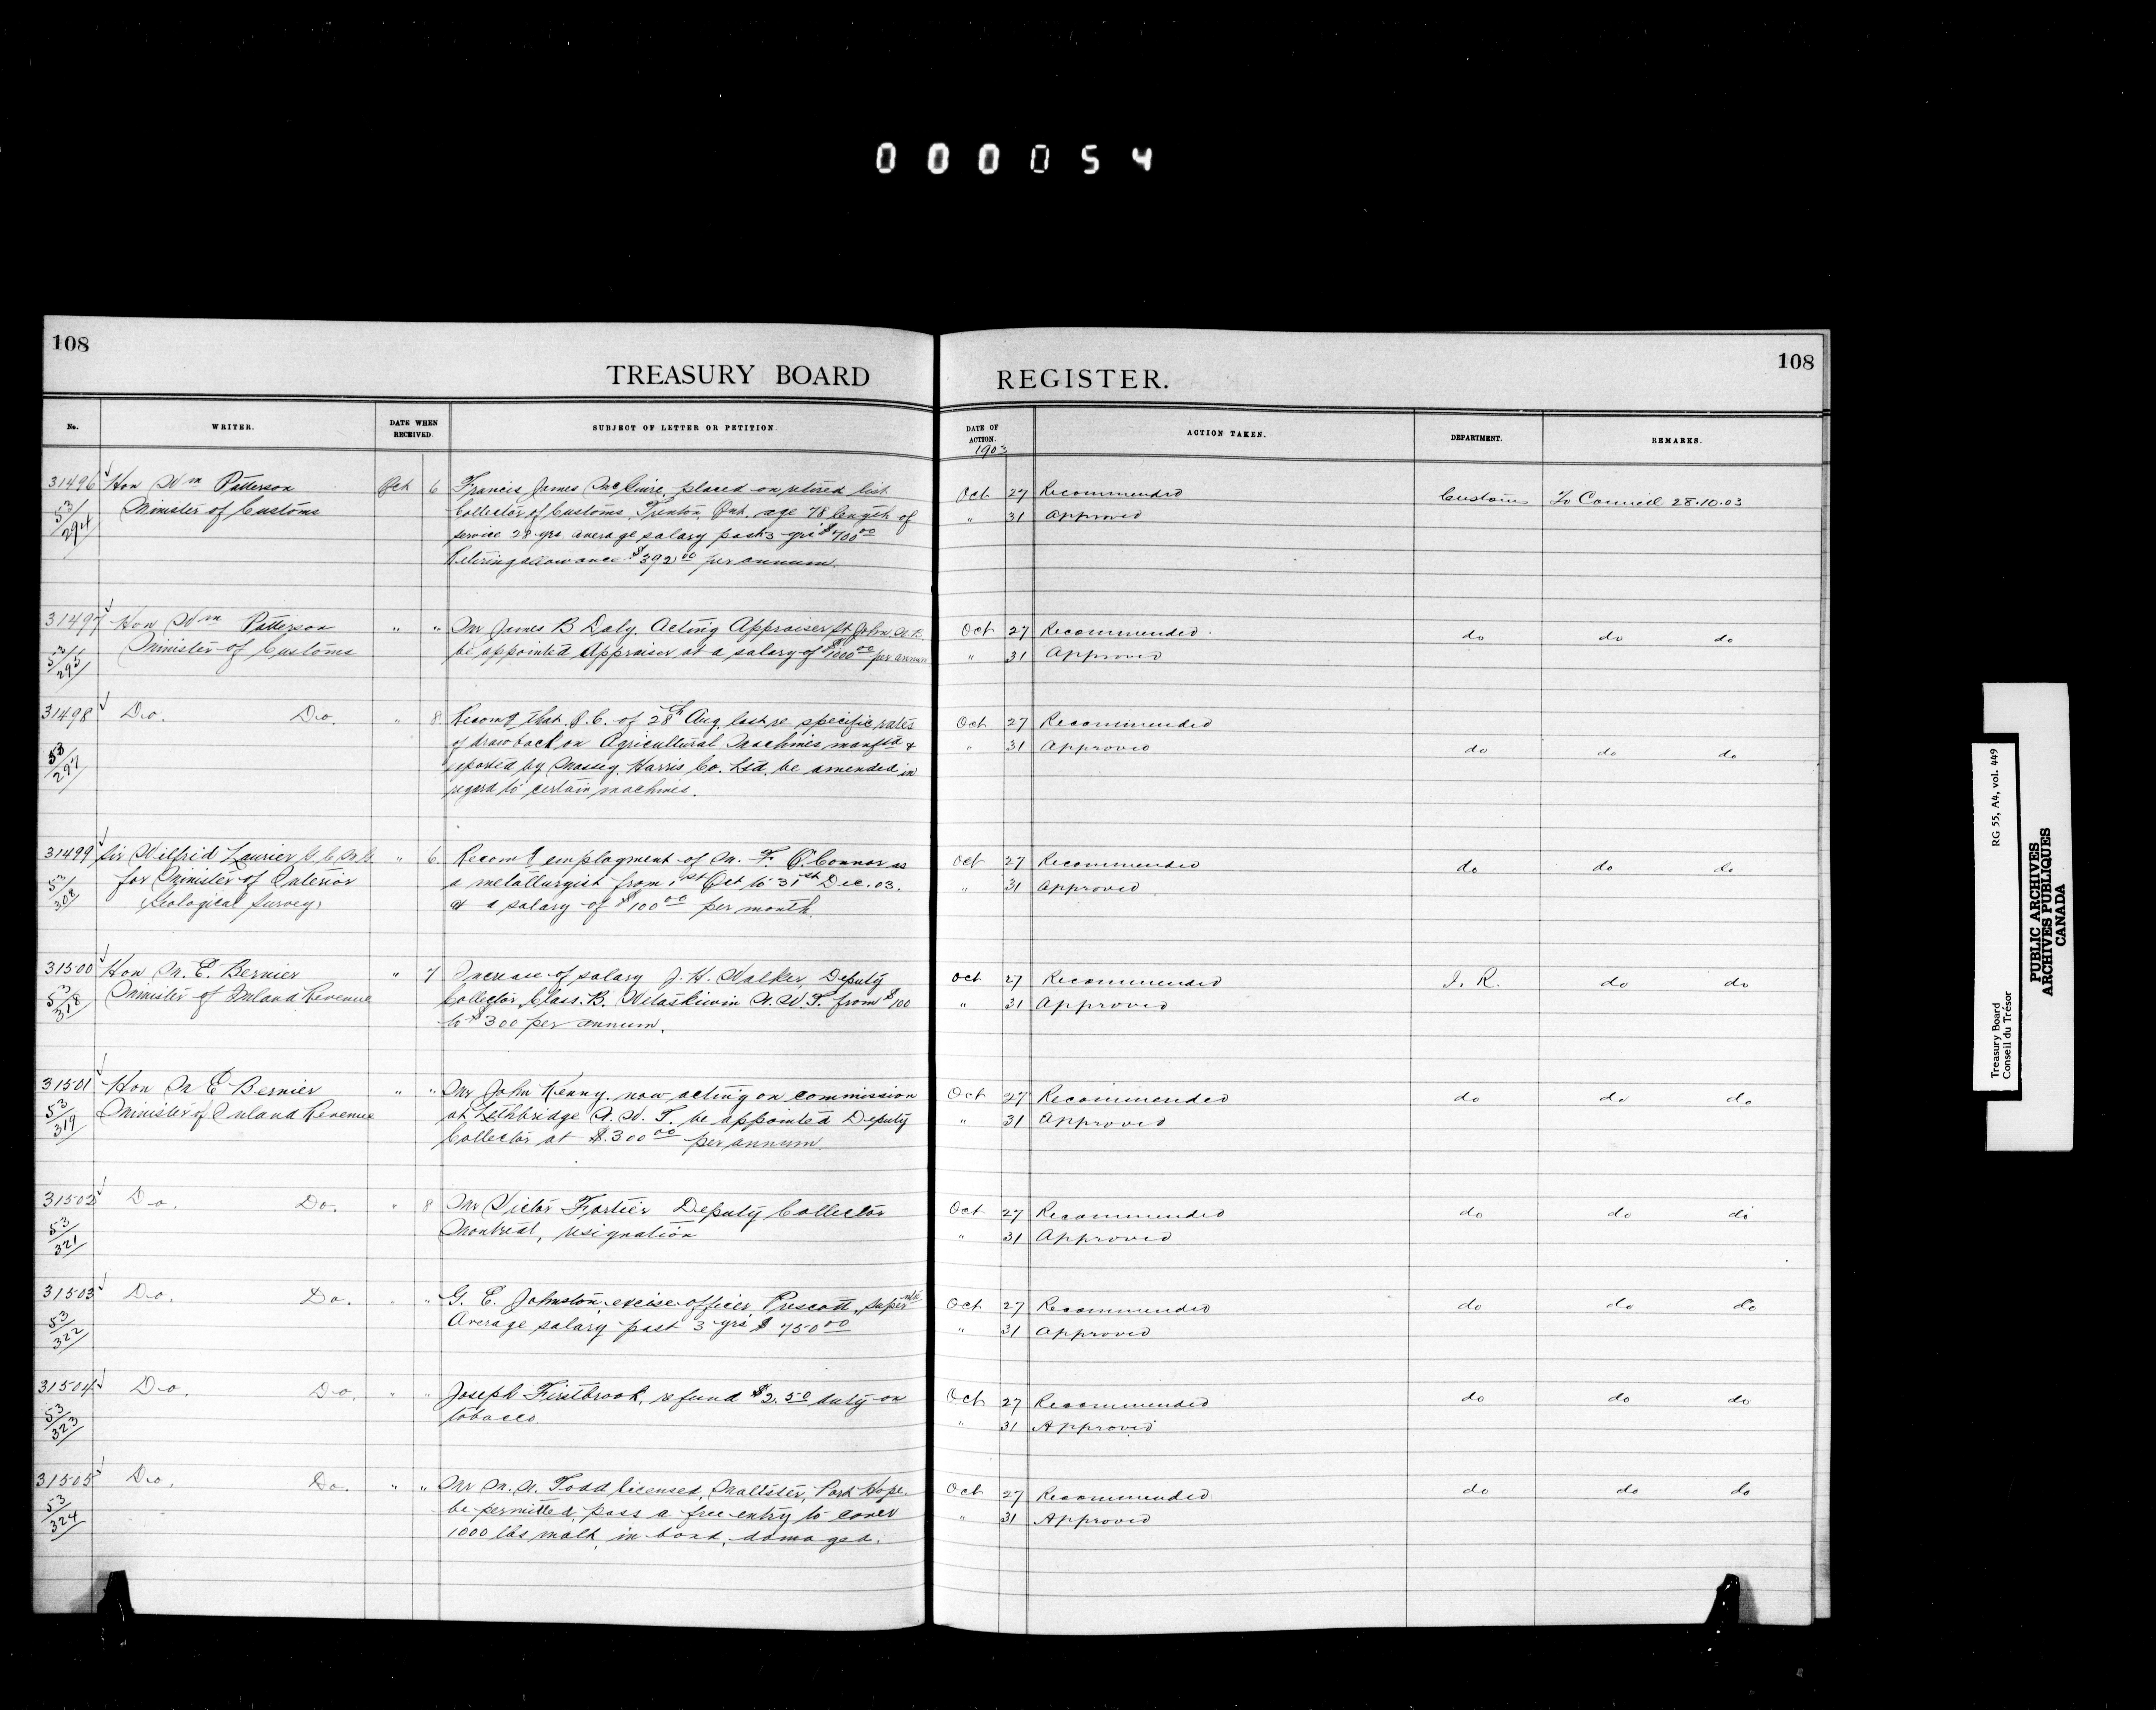 000054
108
TREASURY BOARD
REGISTER.
108
No.
WRITER.
DATE WHEN RECEIVED.
SUBJECT OF LETTER OR PETITION.
DATE OF ACTION.
1903
ACTION TAKEN.
DEPARTMENT.
REMARKS.
31496 Hon Wm Patterson Oct 6 Francis James McGuire, placed on retired list Oct 27 Recommended Customs To Council 28.10.03
53/294 Minister of Customs Collector of Customs, Trenton, Ont. age 78 length of " 31 Approved
service 28 yrs average salary past 3 yrs $700.00
Retiring allowance $392.00 per annum.
31497 Hon Wm Patterson " " Mr James B Daly. Acting Appraiser St John. N.B. Oct 27 Recommended. do do do
53/295 Minister of Customs be appointed Appraiser at a salary of $1000.00 per annum " 31 Approved
31498 Do. Do. " 8. Recomg that O.C. of 28th Aug. last re specific rates Oct 27 Recommended
53/297 of drawback on Agricultural Machines manfed & " 31 Approved do do do
exported by Massey, Harris Co. Ltd. be amended in
regard to certain machines.
31499 Sir Wilfrid Laurier " 6. Recomg employment of M. F. O'Connor as Oct 27 Recommended do do do
for Minister of Interior a metallurgist from 1st Oct to 31st Dec. 03. " 31 Approved
Geological Survey, at a salary of $100.00 per month.
31500 Hon M. E. Bernier " 7 Increase of salary J. H. Walker, Deputy Oct 27 Recommended I. R. do do
53/318 Minister of Inland Revenue Collector, Class. B. Wetaskiwin N. W. T. from $100 " 31 Approved
to $300 per annum.
31501 Hon M E Bernier " " Mr John Kenny. now acting on commission Oct 27 Recommended do do do
53/319 Minister of Inland Revenue at Lethbridge N. W. T. be appointed Deputy " 31 Approved
Collector at $.300.00 per annum.
31502 Do. Do. " 8 Mr Victor Fortier Deputy Collector Oct 27 Recommended do do do
53/321 Montreal, resignation " 31 Approved
31503 Do. Do. " " G. E. Johnston, excise officer, Prescott, Oct 27 Recommended do do do
53/322 Average salary past 3 yrs $750.00 " 31 Approved
31504 Do. Do. " " Joseph Firstbrook, refund $2.50 duty on Oct 27 Recommended do do do
53/323 tobacco. " 31 Approved
31505 Do. Do. " " Mr M. A. Todd licensed, Maltster, Port Hope. Oct 27 Recommended do do do
53/324 be permitted, pass a free entry to cover " 31 Approved
1000 lbs malt, in bond, damaged.
Treasury Board RG 55, A4, vol. 449
Conseil du Trésor
PUBLIC ARCHIVES
ARCHIVES PUBLIQUES
CANADA